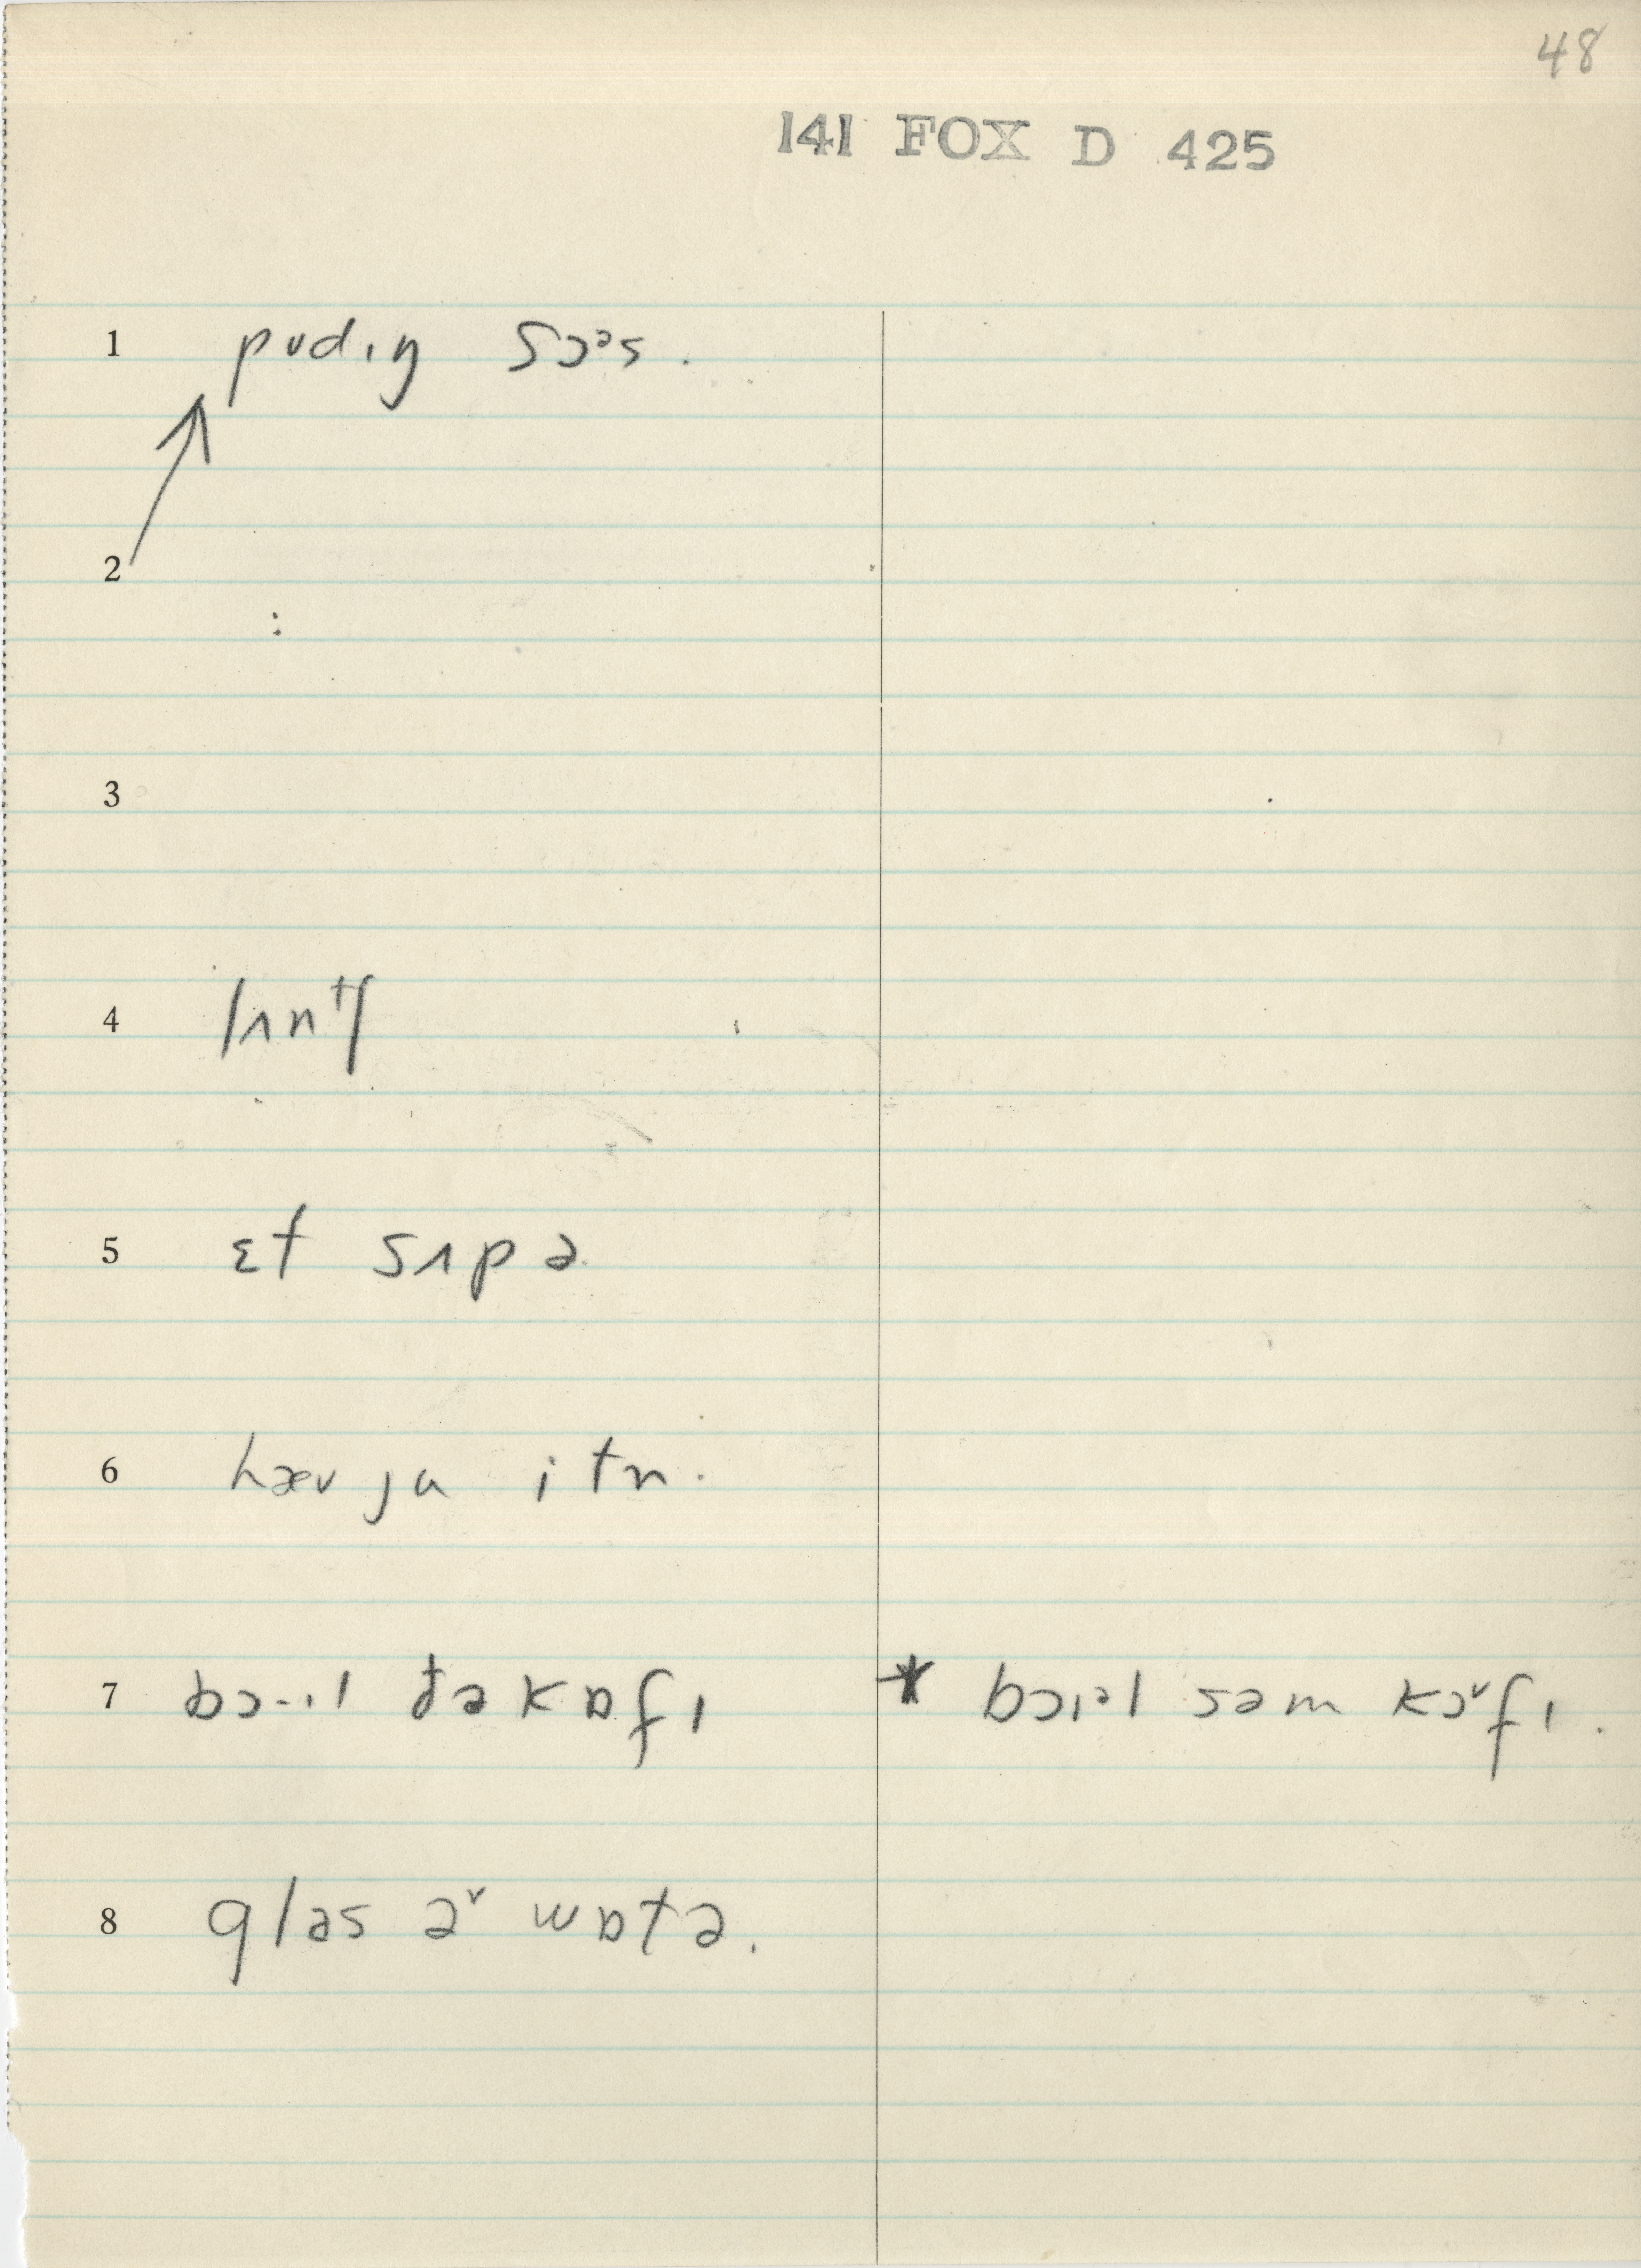 48
141 FOX D 425
1 pʊdɪŋ sɔᵊs.
2
3
4 lʌnᵗʃ
5 ɛt sʌpə
6 hæv ju itn.
7 bɔ·ɪl ðə kɒfɪ * bɔɪᵊl səm kɔᵛfɪ.
8 glas əᵛ wɒtə.